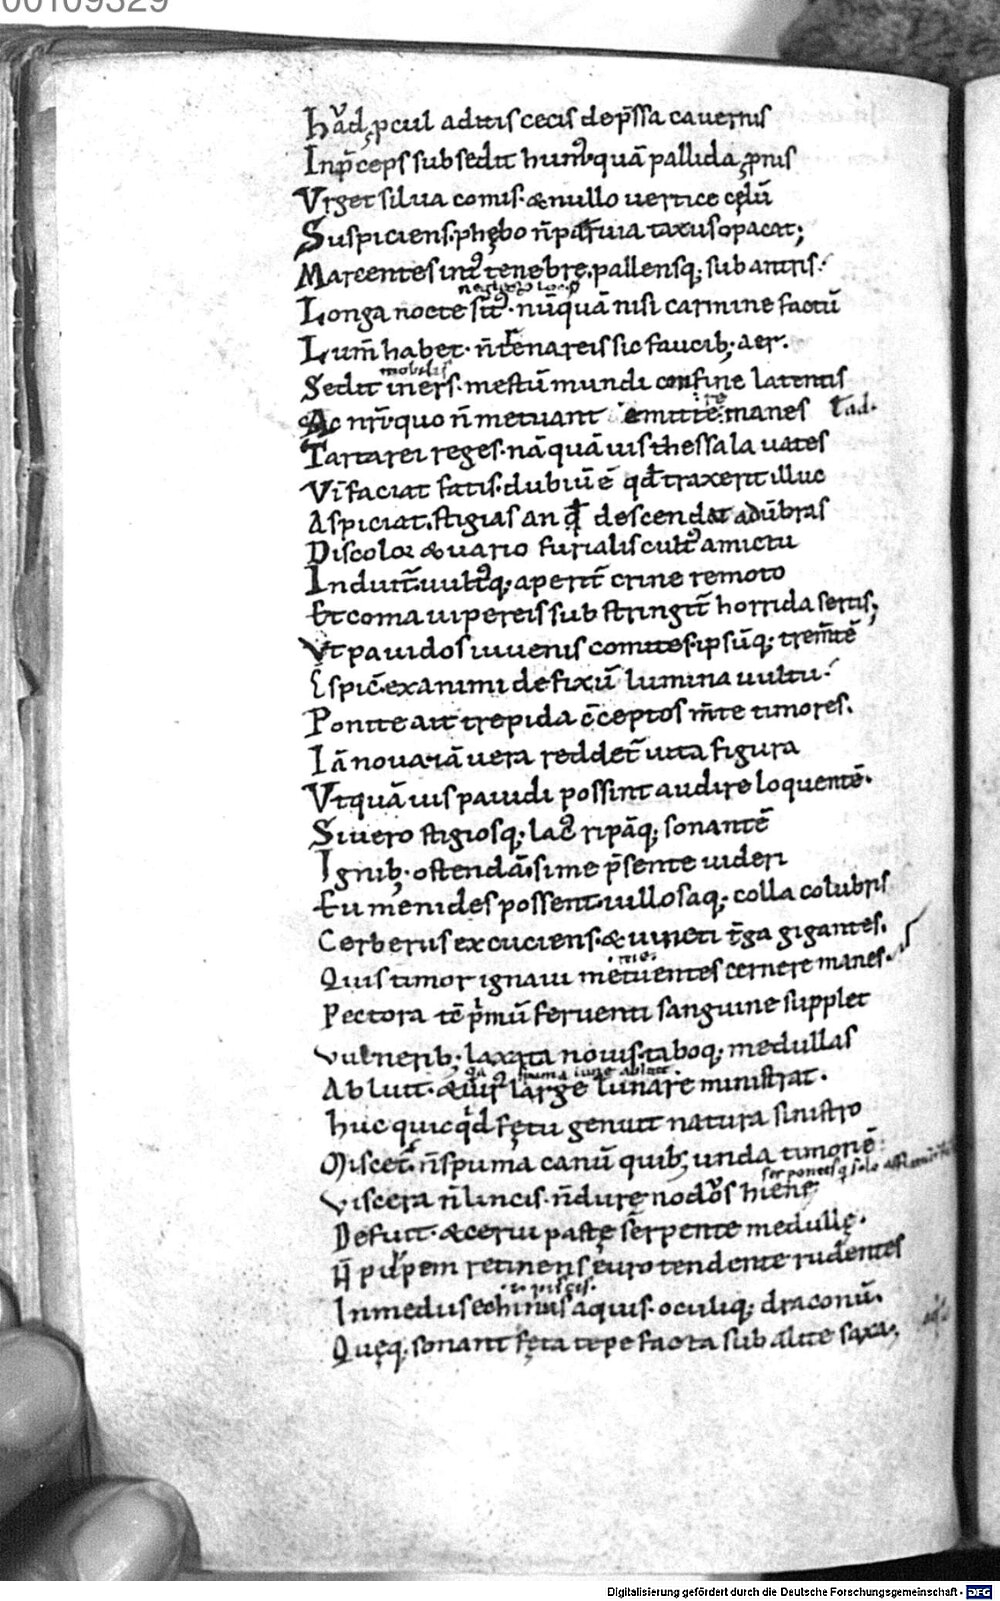 00109329
hͮad pcul aditis cecis dep̄ssa cauernis
Inp̄ceps subsedit humꝰ quā pallida pnis
Vrget silua comis· & nullo uertice cęlū
Suspiciens· phębo n̄ puia taxus opacat;
Marcentes intꝰ tenebrę· pallensq; sub antris·
Longa nocte sitꝰ· nūquā nisi carmine factū
Lum̄ habet· n̄ tenareis sic faucib; aer·
mobilis
Sedit iners· mestū mundi confine latentis
Ac nr̄i· quo n̄ metuant emittere manes t̄ad·
Tartarei reges· nā quā uis thessala uates
Vī faciat fatis· dubiū ē qd̄ traxerit illuc
Aspiciat· stigias an qd̄ descendat ad ūbras
Discolor & uario furialis cultꝰ amictu
Induit̄· uultꝰq; aperit̄ crine remoto
Et coma uipereis substringit̄ horrida sertis;
Vt pauidos iuuenis comites· ipsūq; trem̄tē
Cspic̄ exanimi defixū lumina uultu·
Ponite ait trepida c̄ceptos m̄te timores·
Iā noua· iā uera reddet̄ uita figura
Vt quā uis pauidi possint audire loquentē·
Si uero stigiosq; lacꝰ ripāq; sonantē
Ignib; ostendā· si me p̄sente uideri
Eumenides possent· uillosaq; colla colubris
Cerberus excuciens· & uincti t̄ga gigantes·
Quis timor ignaui metuentes cernere manes·
Pectora tē p̄mū feruenti sanguine supplet
Vulnerib; laxata nouis· taboq; medullas
Abluit· & uirꝰ large lunare ministrat·
huc quicqd fętu genuit natura sinistro
Miscet̄· n̄ spuma canū quib; unda timori ē
Viscera n̄ lincis· n̄ durę nodꝰ hienę
Defuit· & cerui pastę serpente medullę·
N̄ puppem retinens euro tendente rudentes
i· piscis·
In mediis echinus aquis· oculiq; draconū·
Quęq; sonant fęta tepefacta sub alite saxa·
Digitalisierung gefördert durch die Deutsche Forschungsgemeinschaft - DFG